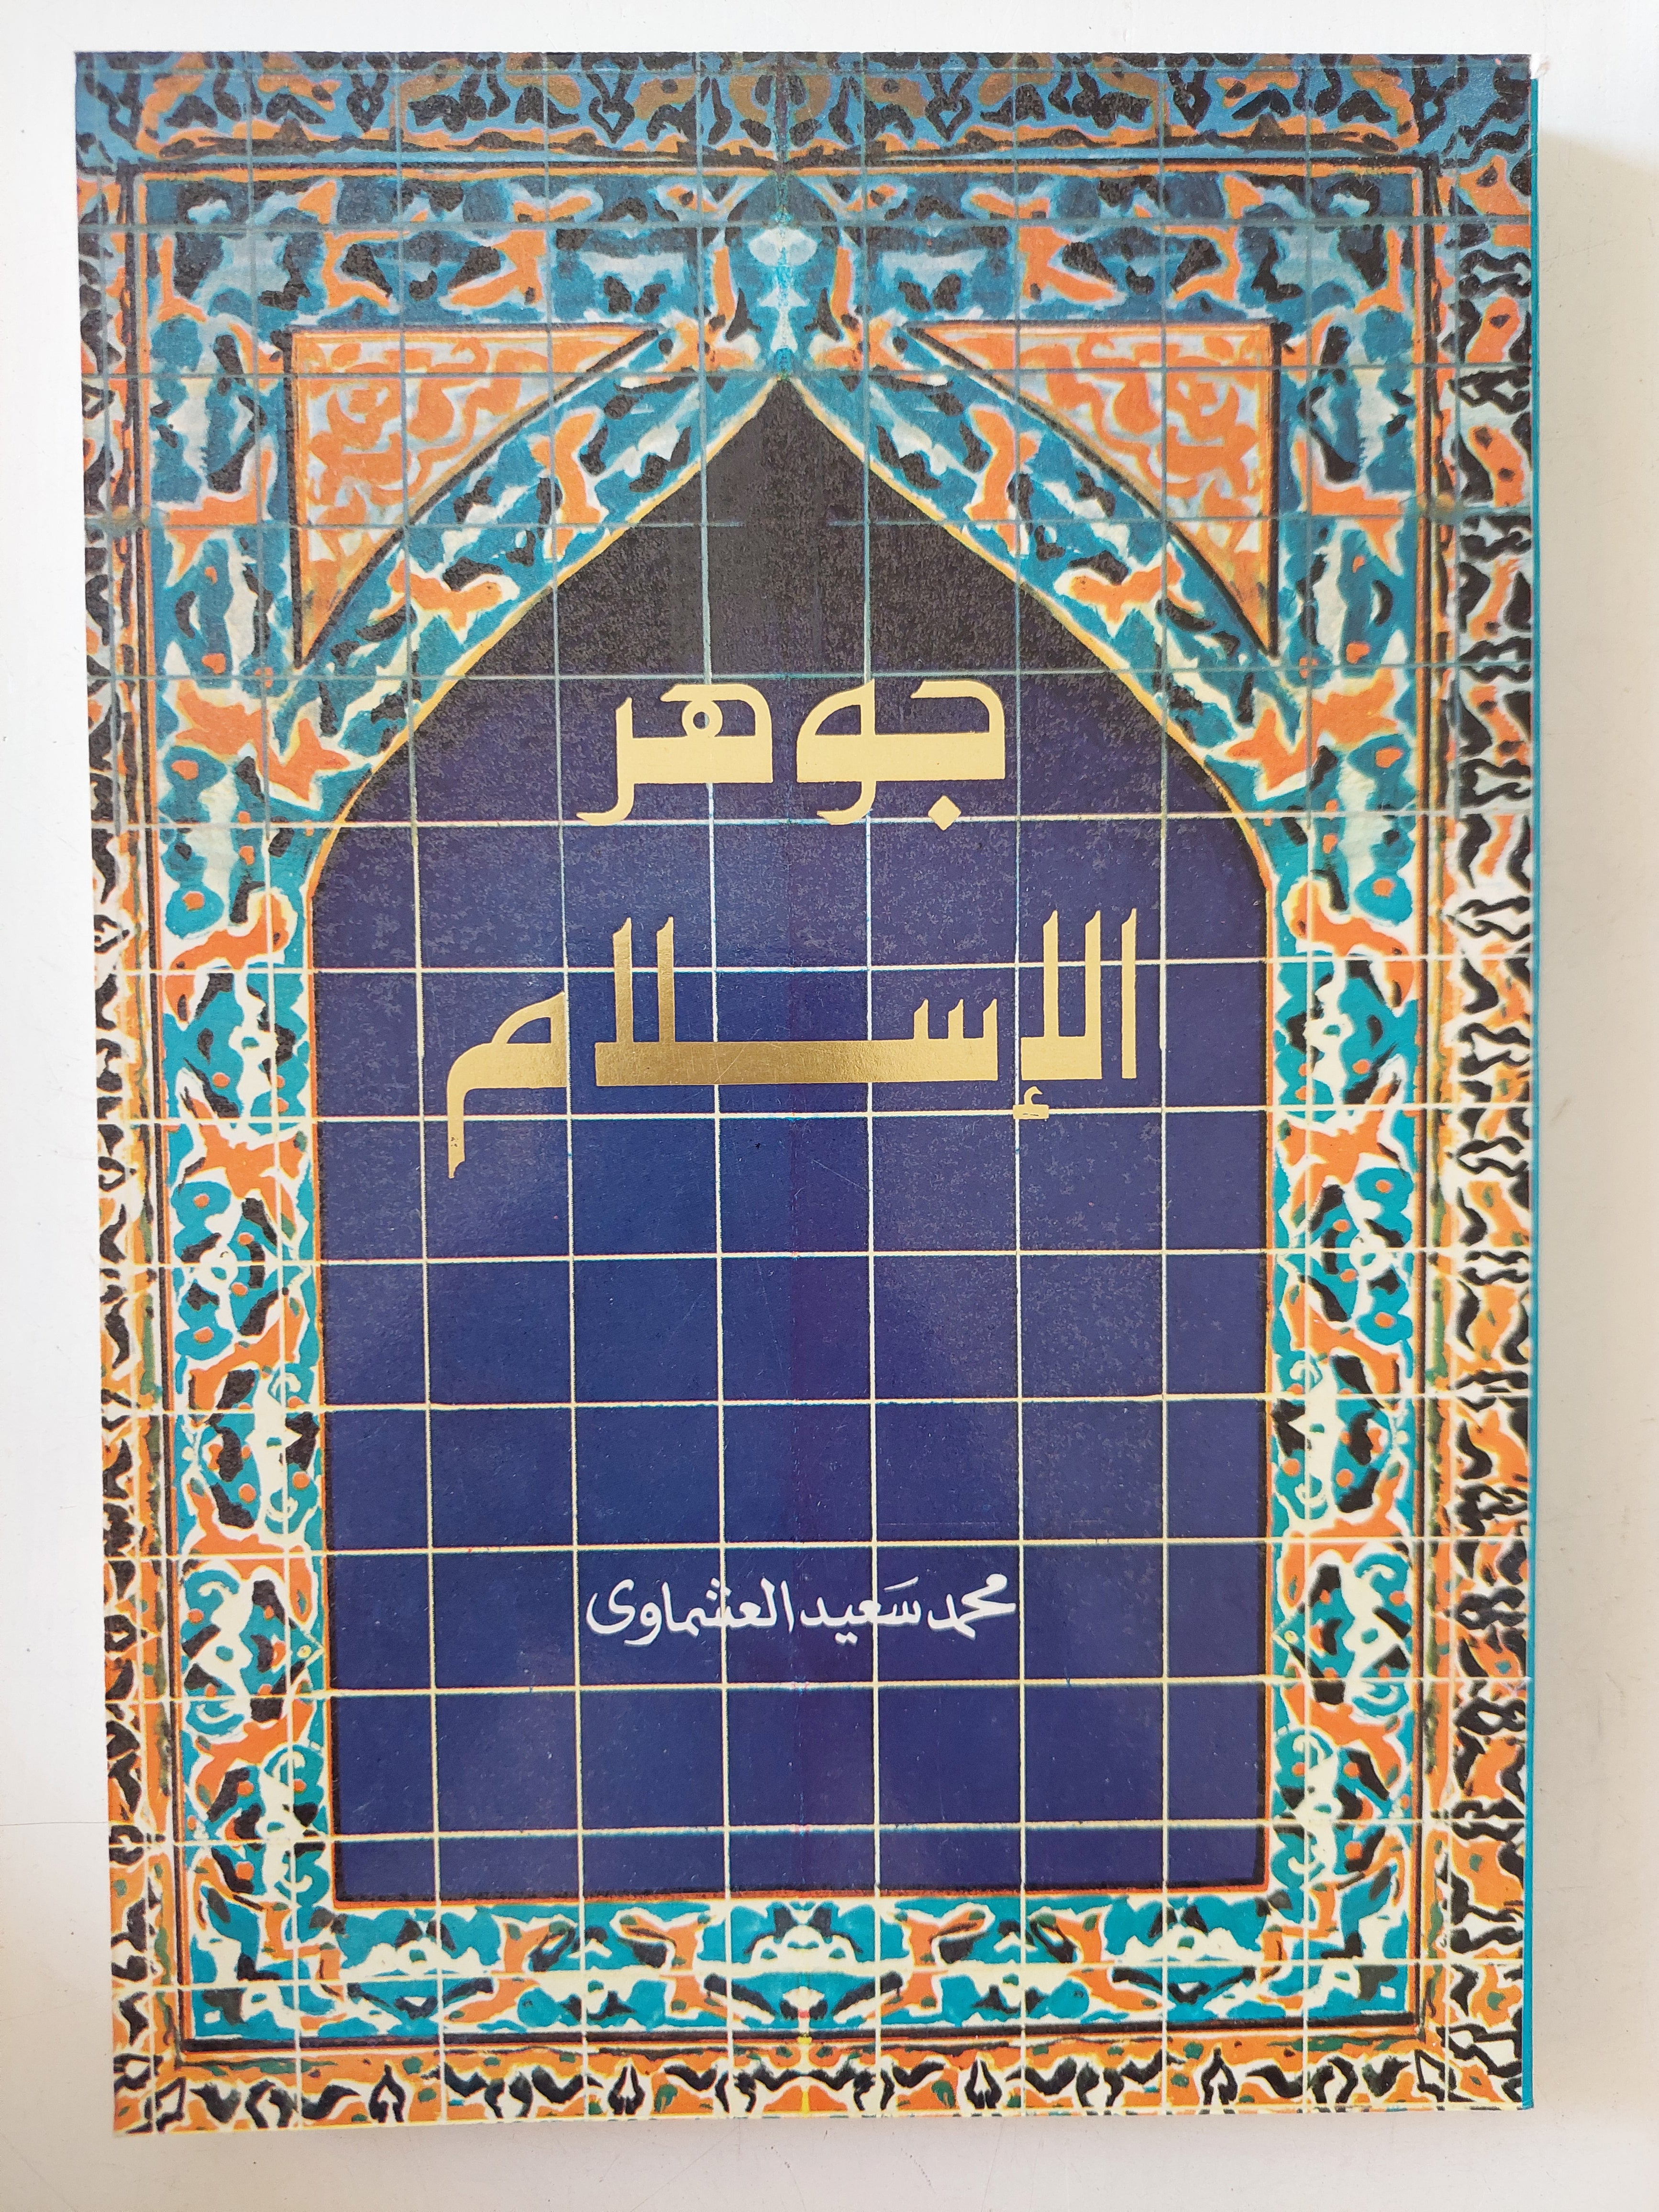 جوهر
الإسلام
محمد سَعيد العشماوى